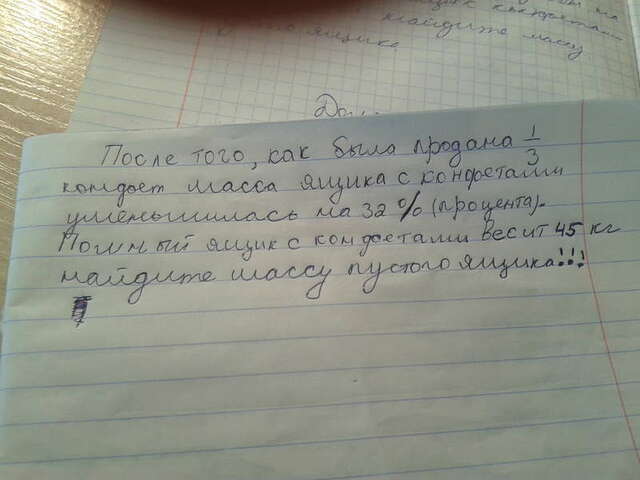 найдите массу
ящика.
После того, как была продана 1/3
конфет масса ящика с конфетами
уменьшилась на 32% (процента).
Полный ящик с конфетами весит 45 кг
найдите массу пустого ящика!!!